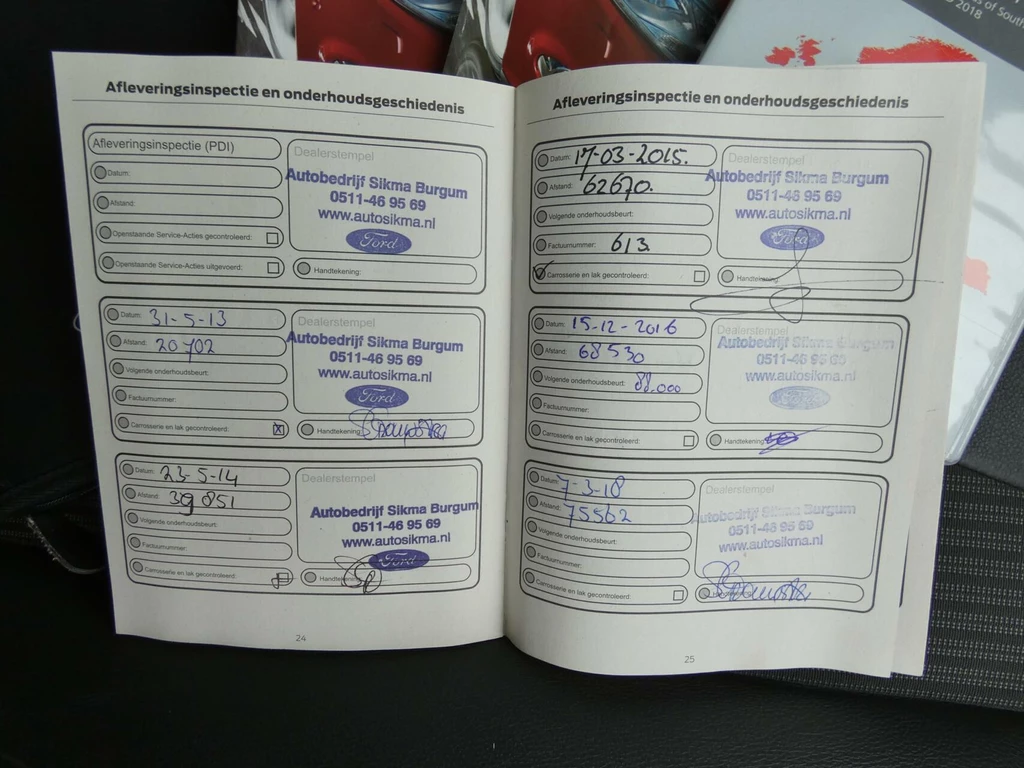 s of South
2018
Afleveringsinspectie en onderhoudsgeschiedenis
Afleveringsinspectie (PDI)
Datum:
Afstand:
Openstaande Service-Acties gecontroleerd:
Openstaande Service-Acties uitgevoerd:
Dealerstempel
Autobedrijf Sikma Burgum
0511-46 95 69
www.autosikma.nl
Ford
Handtekening:
Datum: 31-5-13
Afstand: 20702
Volgende onderhoudsbeurt:
Factuurnummer:
Carrosserie en lak gecontroleerd: X
Dealerstempel
Autobedrijf Sikma Burgum
0511-46 95 69
www.autosikma.nl
Ford
Handtekening:
Datum: 23-5-14
Afstand: 39851
Volgende onderhoudsbeurt:
Factuurnummer:
Carrosserie en lak gecontroleerd:
Dealerstempel
Autobedrijf Sikma Burgum
0511-46 95 69
www.autosikma.nl
Ford
Handtekening:
24
Afleveringsinspectie en onderhoudsgeschiedenis
Datum: 17-03-2015.
Afstand: 62670.
Volgende onderhoudsbeurt:
Factuurnummer: 613.
Carrosserie en lak gecontroleerd:
Dealerstempel
Autobedrijf Sikma Burgum
0511-46 95 69
www.autosikma.nl
Ford
Handtekening:
Datum: 15-12-2016
Afstand: 68530
Volgende onderhoudsbeurt: 88.000
Factuurnummer:
Carrosserie en lak gecontroleerd:
Dealerstempel
Autobedrijf Sikma Burgum
0511-46 95 69
www.autosikma.nl
Ford
Handtekening:
Datum: 7-3-18
Afstand: 75562
Volgende onderhoudsbeurt:
Factuurnummer:
Carrosserie en lak gecontroleerd:
Dealerstempel
Autobedrijf Sikma Burgum
0511-46 95 69
www.autosikma.nl
25